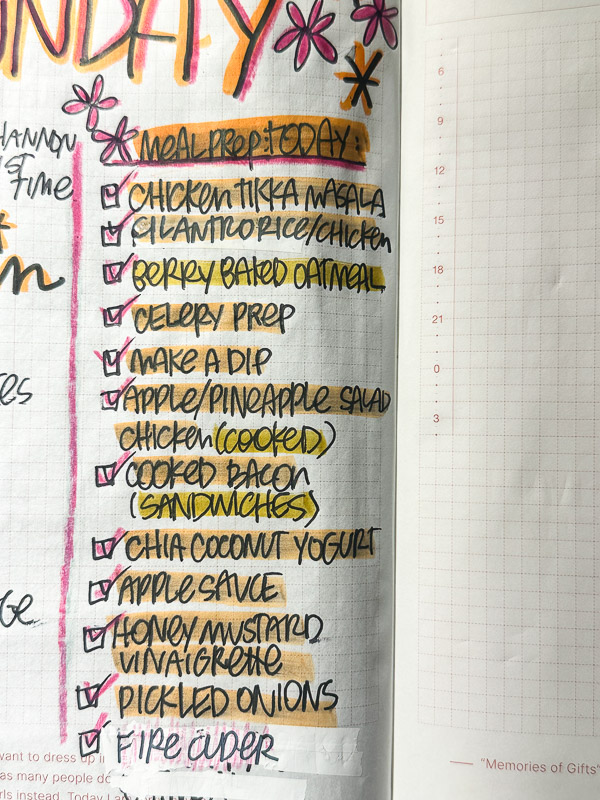 UNDAY
HANNON
IST
TIME
MEAL PREP: TODAY:
CHICKEN TIKKA MASALA
CILANTRO RICE/CHICKEN
BERRY BAKED OATMEAL
CELERY PREP
MAKE A DIP
APPLE/PINEAPPLE SALAD
CHICKEN (COOKED)
COOKED BACON
(SANDWICHES)
CHIA COCONUT YOGURT
APPLE SAUCE
HONEY MUSTARD
VINAIGRETTE
PICKLED ONIONS
FIRE CIDER
want to dress up
as many people do
rls instead. Today I
6
9
12
15
18
21
0
3
— "Memories of Gifts"